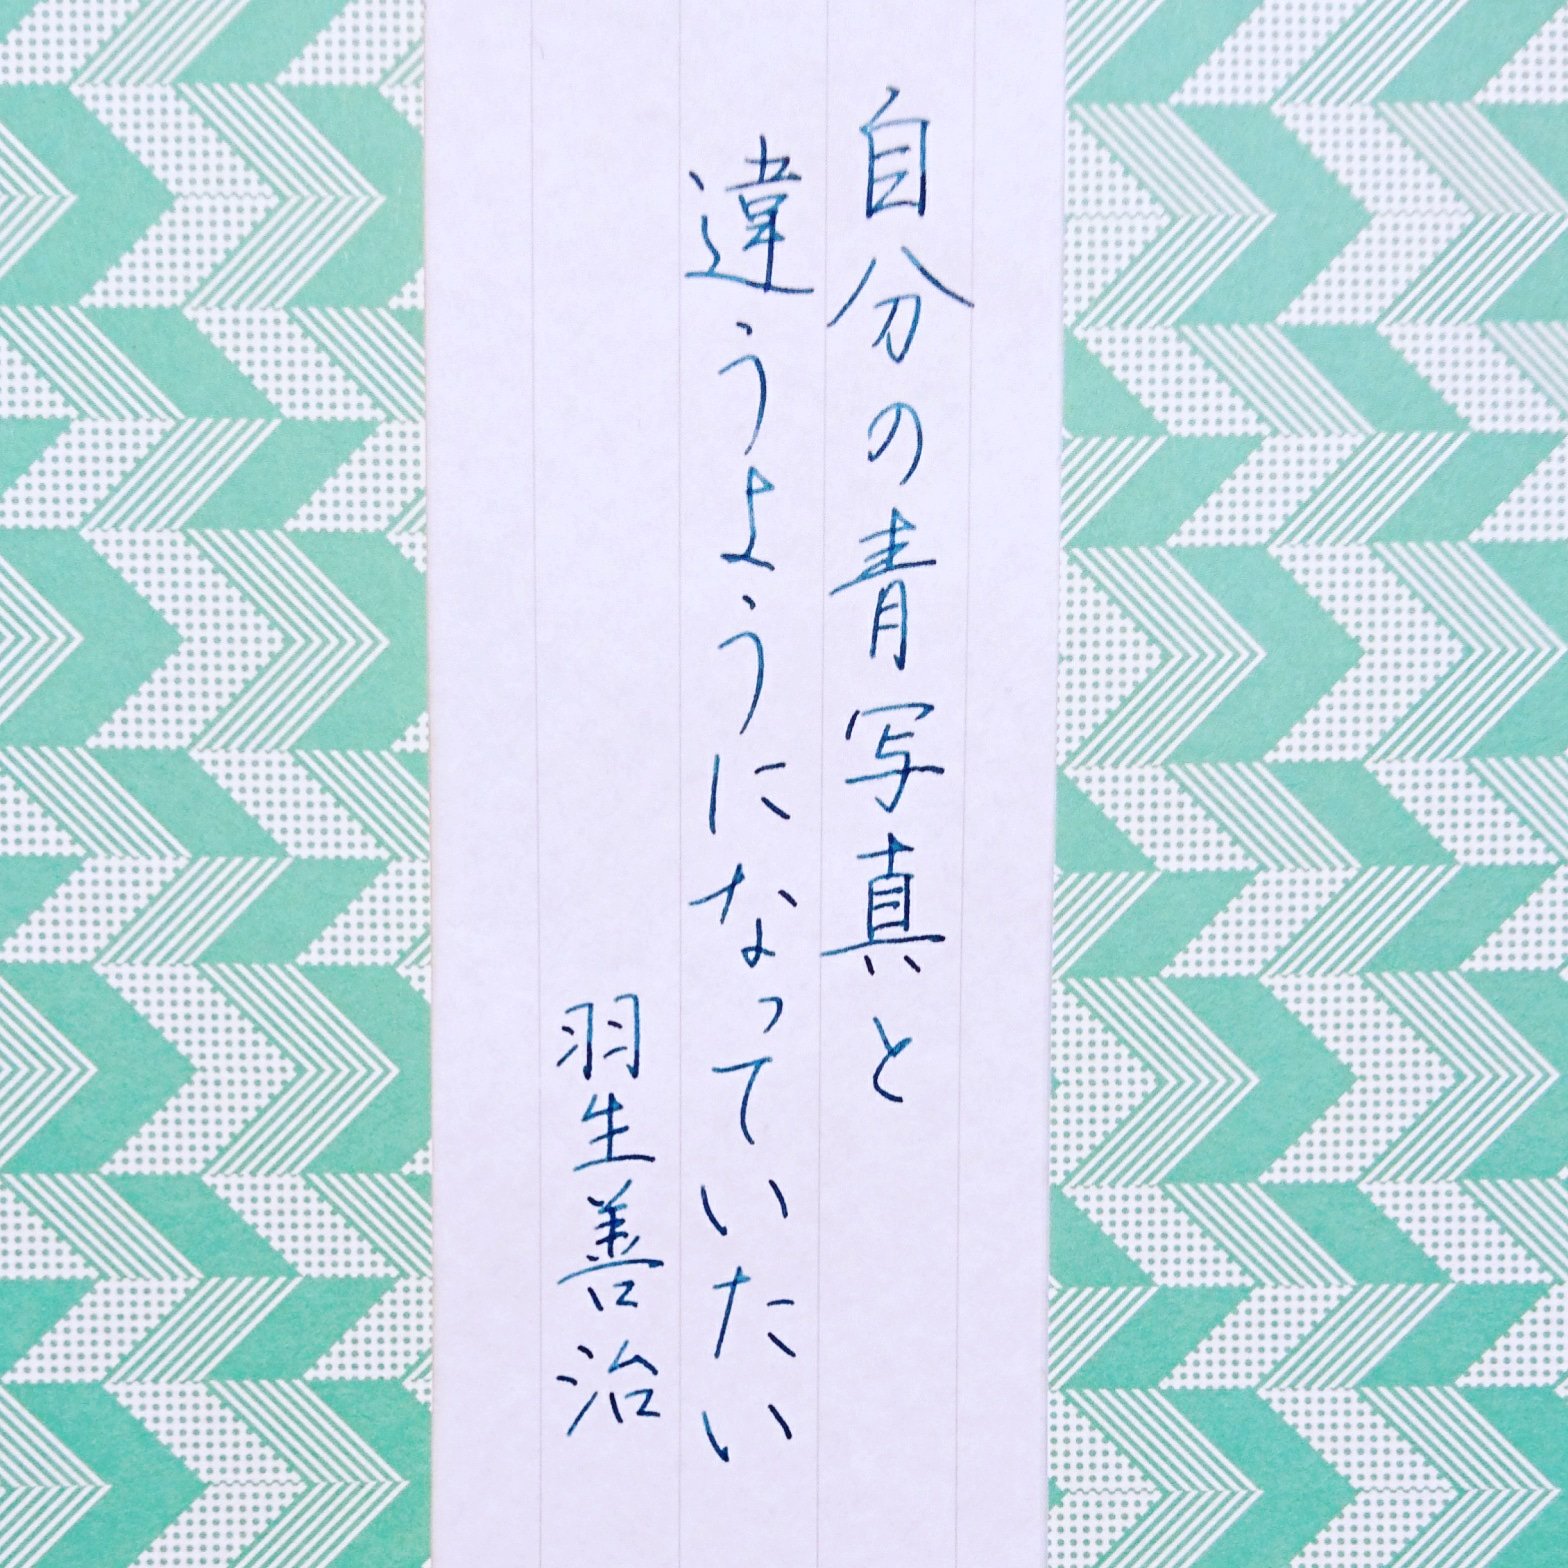 自分の青写真と
違うようになっていたい
羽生善治